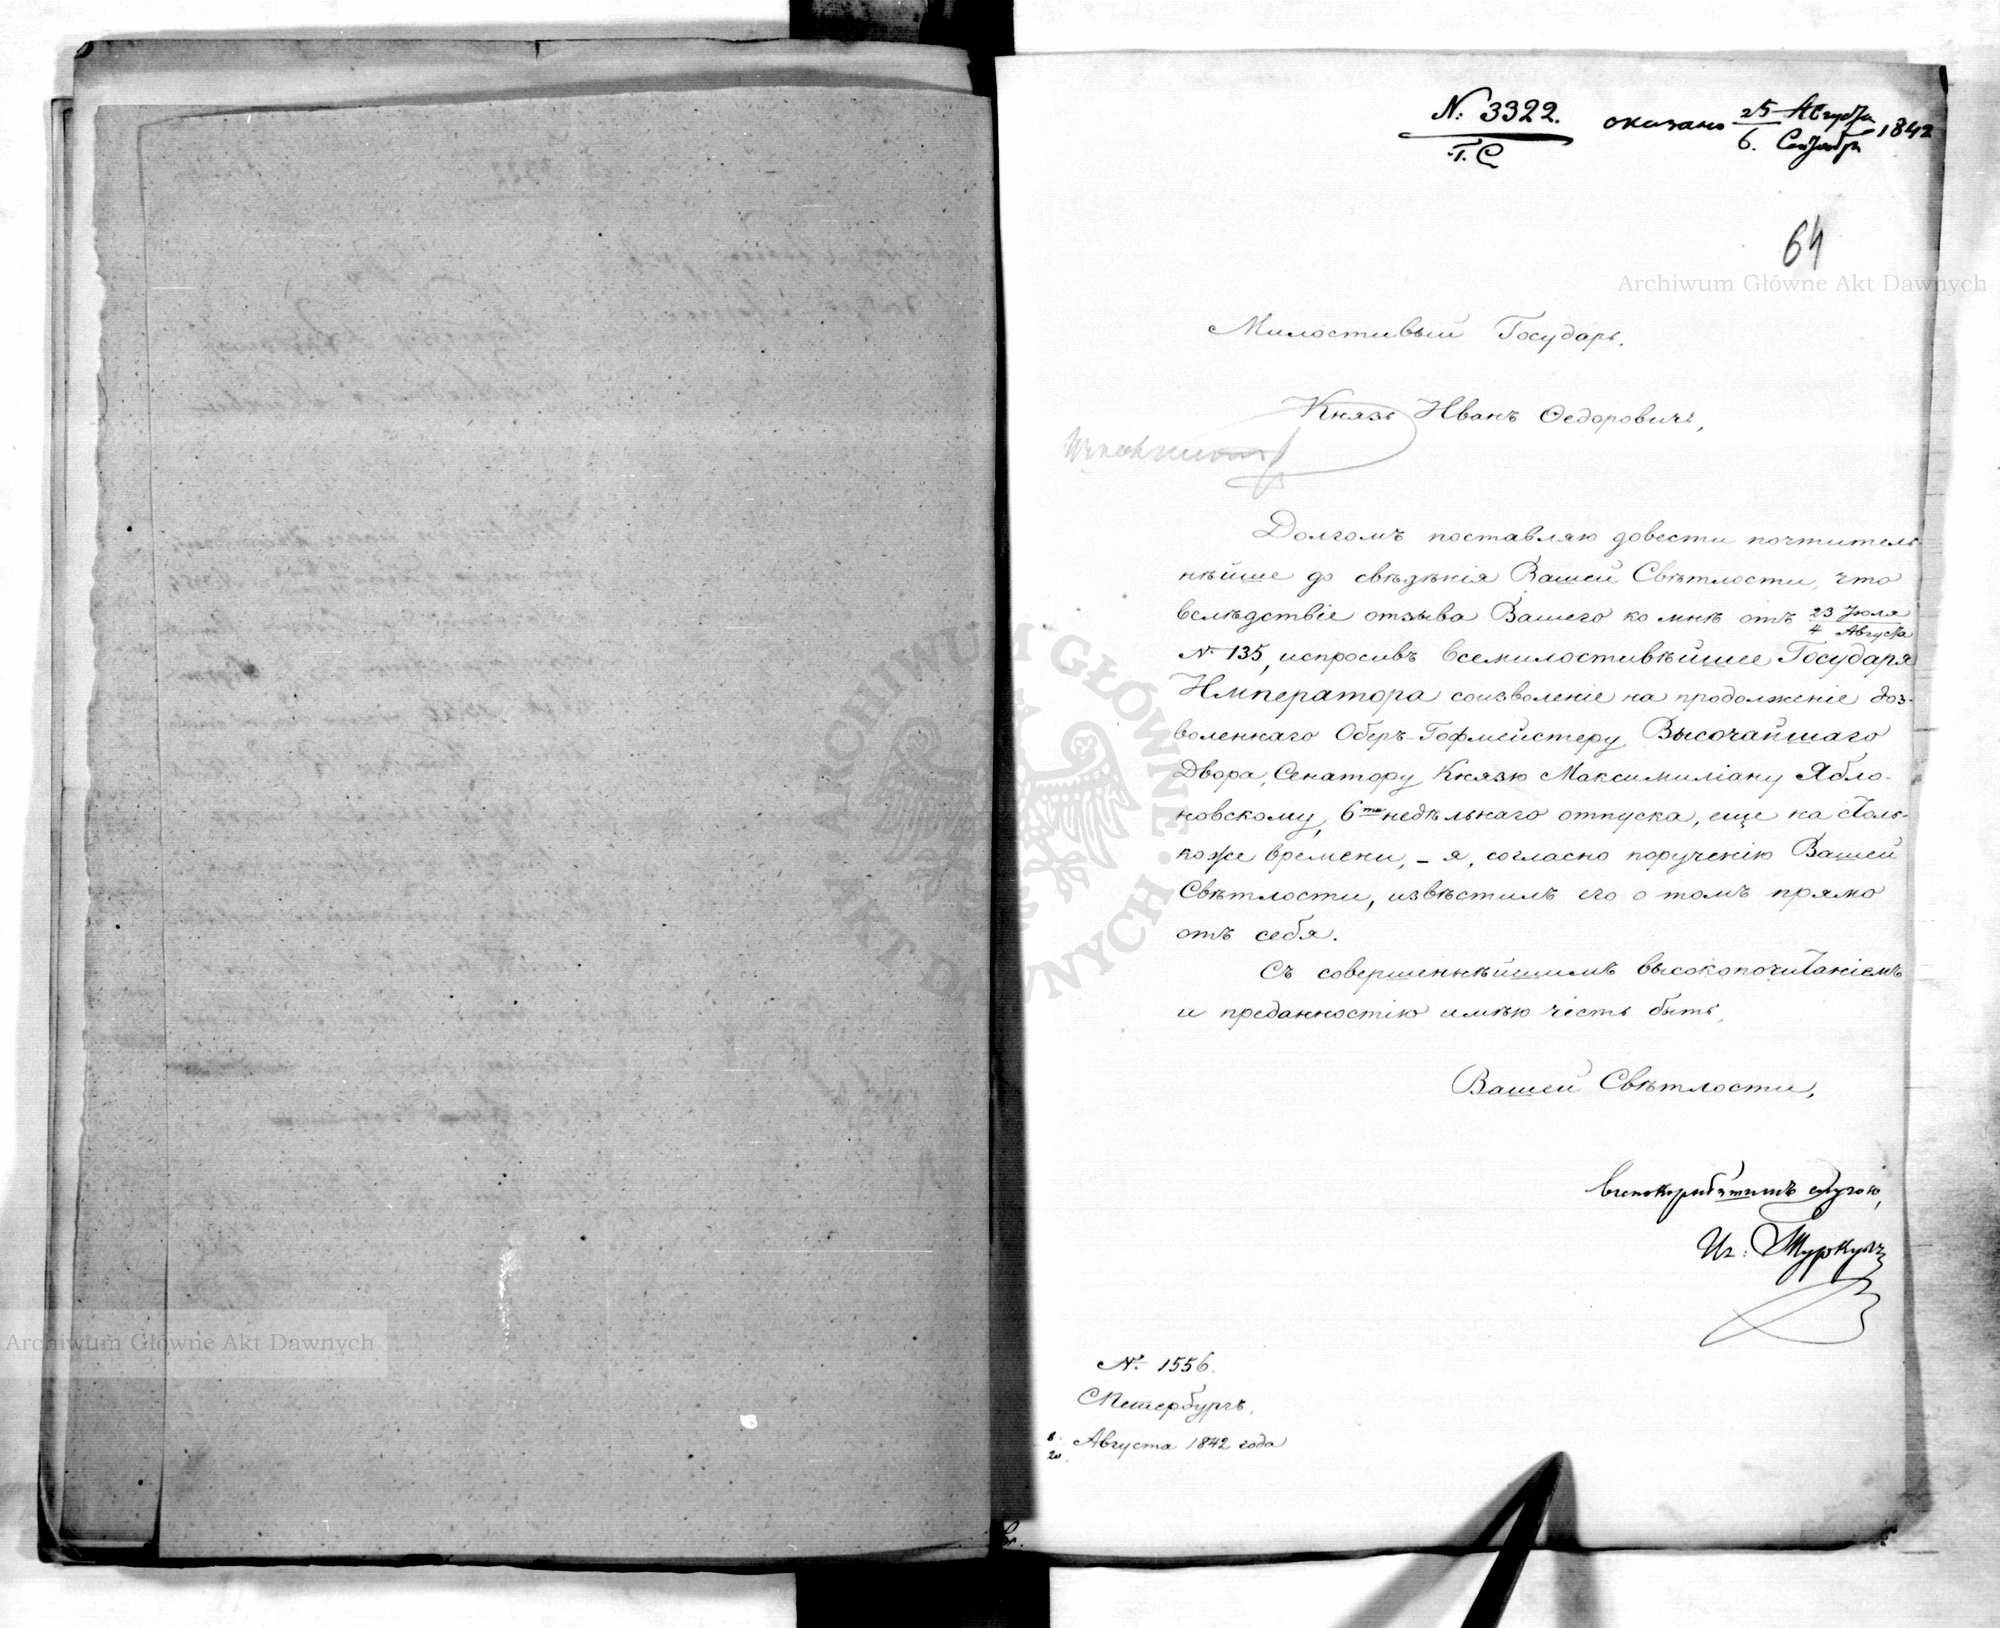 № 3322.
Т. С.
оказано 25 Августа / 6. Сентября 1842
64
Archiwum Główne Akt Dawnych
Милостивый Государь,
Князь Иванъ Ѳедоровичъ,
Долгомъ поставляю довести почтитель-
нѣйше до свѣдѣнія Вашей Свѣтлости, что
вслѣдствіе отзыва Вашего ко мнѣ отъ 23 Іюля / 4 Августа
№ 135, испросивъ всемилостивѣйшее Государя
Императора соизволеніе на продолженіе доз-
воленнаго Оберъ-Гофмейстеру Высочайшаго
Двора, Сенатору Князю Максимиліану Ябло-
новскому, 6ти недѣльнаго отпуска, еще на столь-
коже времени, – я, согласно порученію Вашей
Свѣтлости, извѣстилъ его о томъ прямо
отъ себя.
Съ совершеннѣйшимъ высокопочитаніемъ
и преданностію имѣю честь быть,
Вашей Свѣтлости,
всепокорнѣйшимъ слугою,
Иг: Туркулъ
№ 1556.
СПетербургъ,
8/20. Августа 1842 года
Archiwum Główne Akt Dawnych
ARCHIWUM GŁÓWNE AKT DAWNYCH